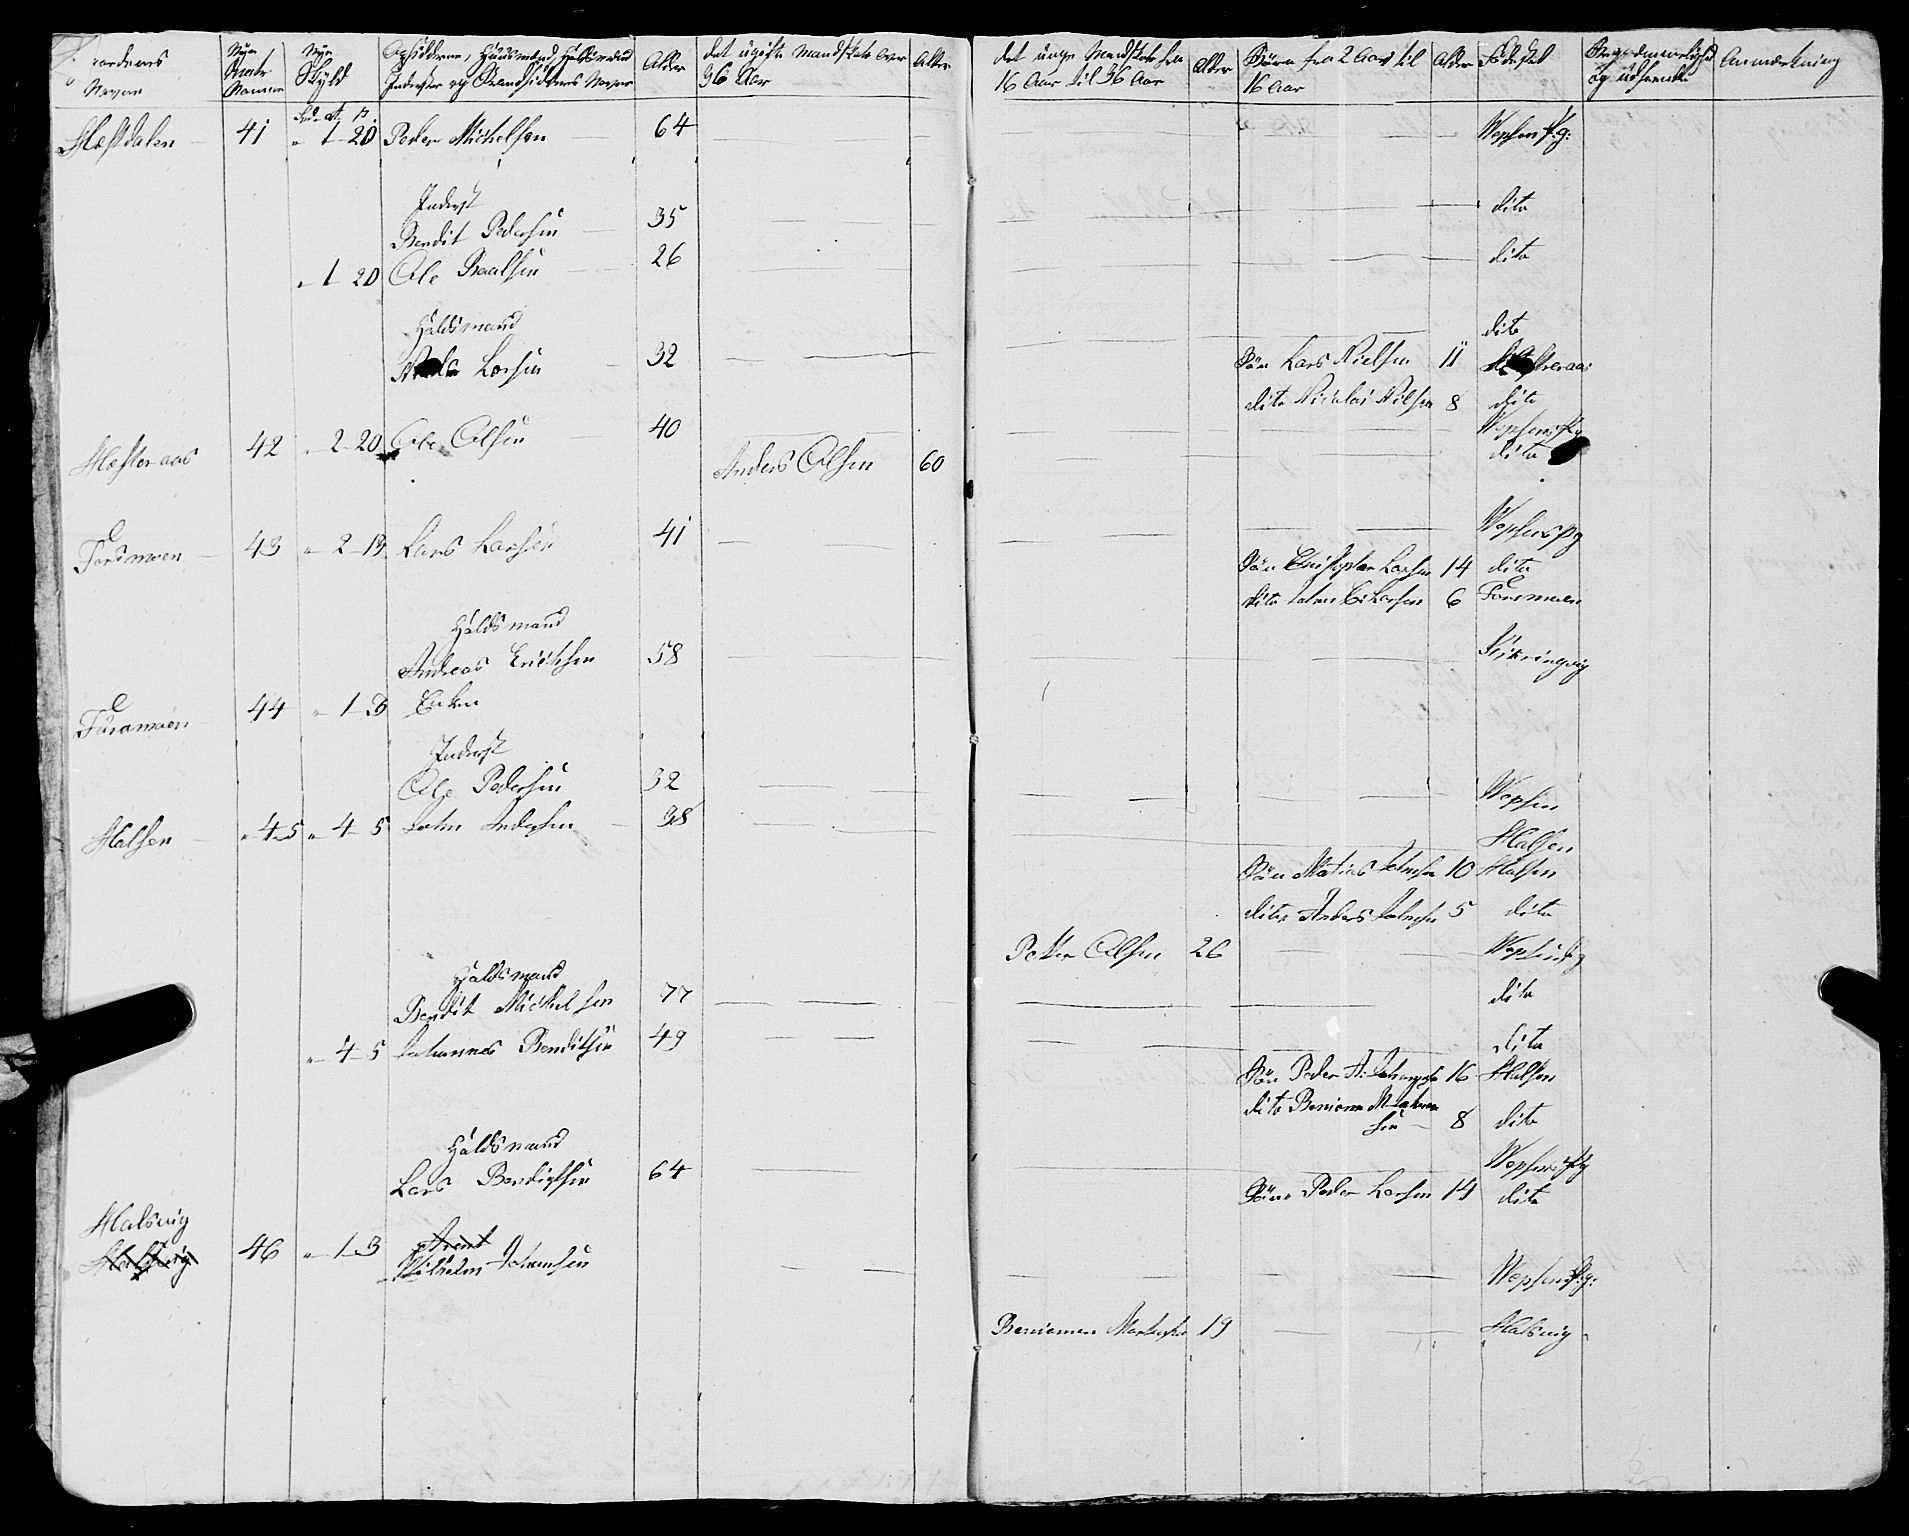 Gaardenes Navne
Nye Matr Nummer
Nye Skyld
Opsiddere, Huusmænd, Holdsmænd Inderster og Strandsidderes Navne
Alder
det ugifte Mandskab over 36 Aar
Alder
det unge Mandskab fra 16 Aar til 36 Aar
Alder
Börn fra 2 Aar til 16 Aar
Alder
Födested
og udseende
Anmærkning
Hæstdalen 41 " 1 20 Peder Michelsen 64 Wepsen P:g:
Inderst
Bendit Pedersen 35 dito
" 1 20 Ole Paalsen 26 dito
Holdsmand dito
Larsen 32 Sön Lars Nielsen 11
dito Nicolai Nilsen 8 dito
Hæsteraas 42 " 2 20 Ole Olsen 40 Wepsens Pg
Anders Olsen 60 dito
Forsmoen 43 " 2 13 Lars Larsen 41 Wepsens Pg
Sön Christopher Larsen 14 dito
dito Larsen 6 Forsmoen
Holdsmand
Andreas Erichsen 58
Fursmoen 44 " 1 3 Enken
Inderst
Ole Pedersen 32 Wepsen
Halsen " 45 " 4 5 John Andersen 38 Halsen
Sön Matias Johnsen 10 Halsen
dito Anders Johnsen 5 dito
Petter Olsen 26 Wepsens Pg
Holdsmand
Bendit Michelsen 77 dito
" 4 5 Johannes Benditsen 49 dito
Sön Peder A: Johannes 16 Halsen
dito Beniamen M Johannes
sen 8 dito
Holdsmand
Lars Bendigtsen 64 Wepsens Pg
Sön Peder Larsen 14 dito
Halsvig
46 " 1 3 Arent
Wilhelm Johansen Wepsens P:g:
Beniamen Martinsen 19 Halsvig